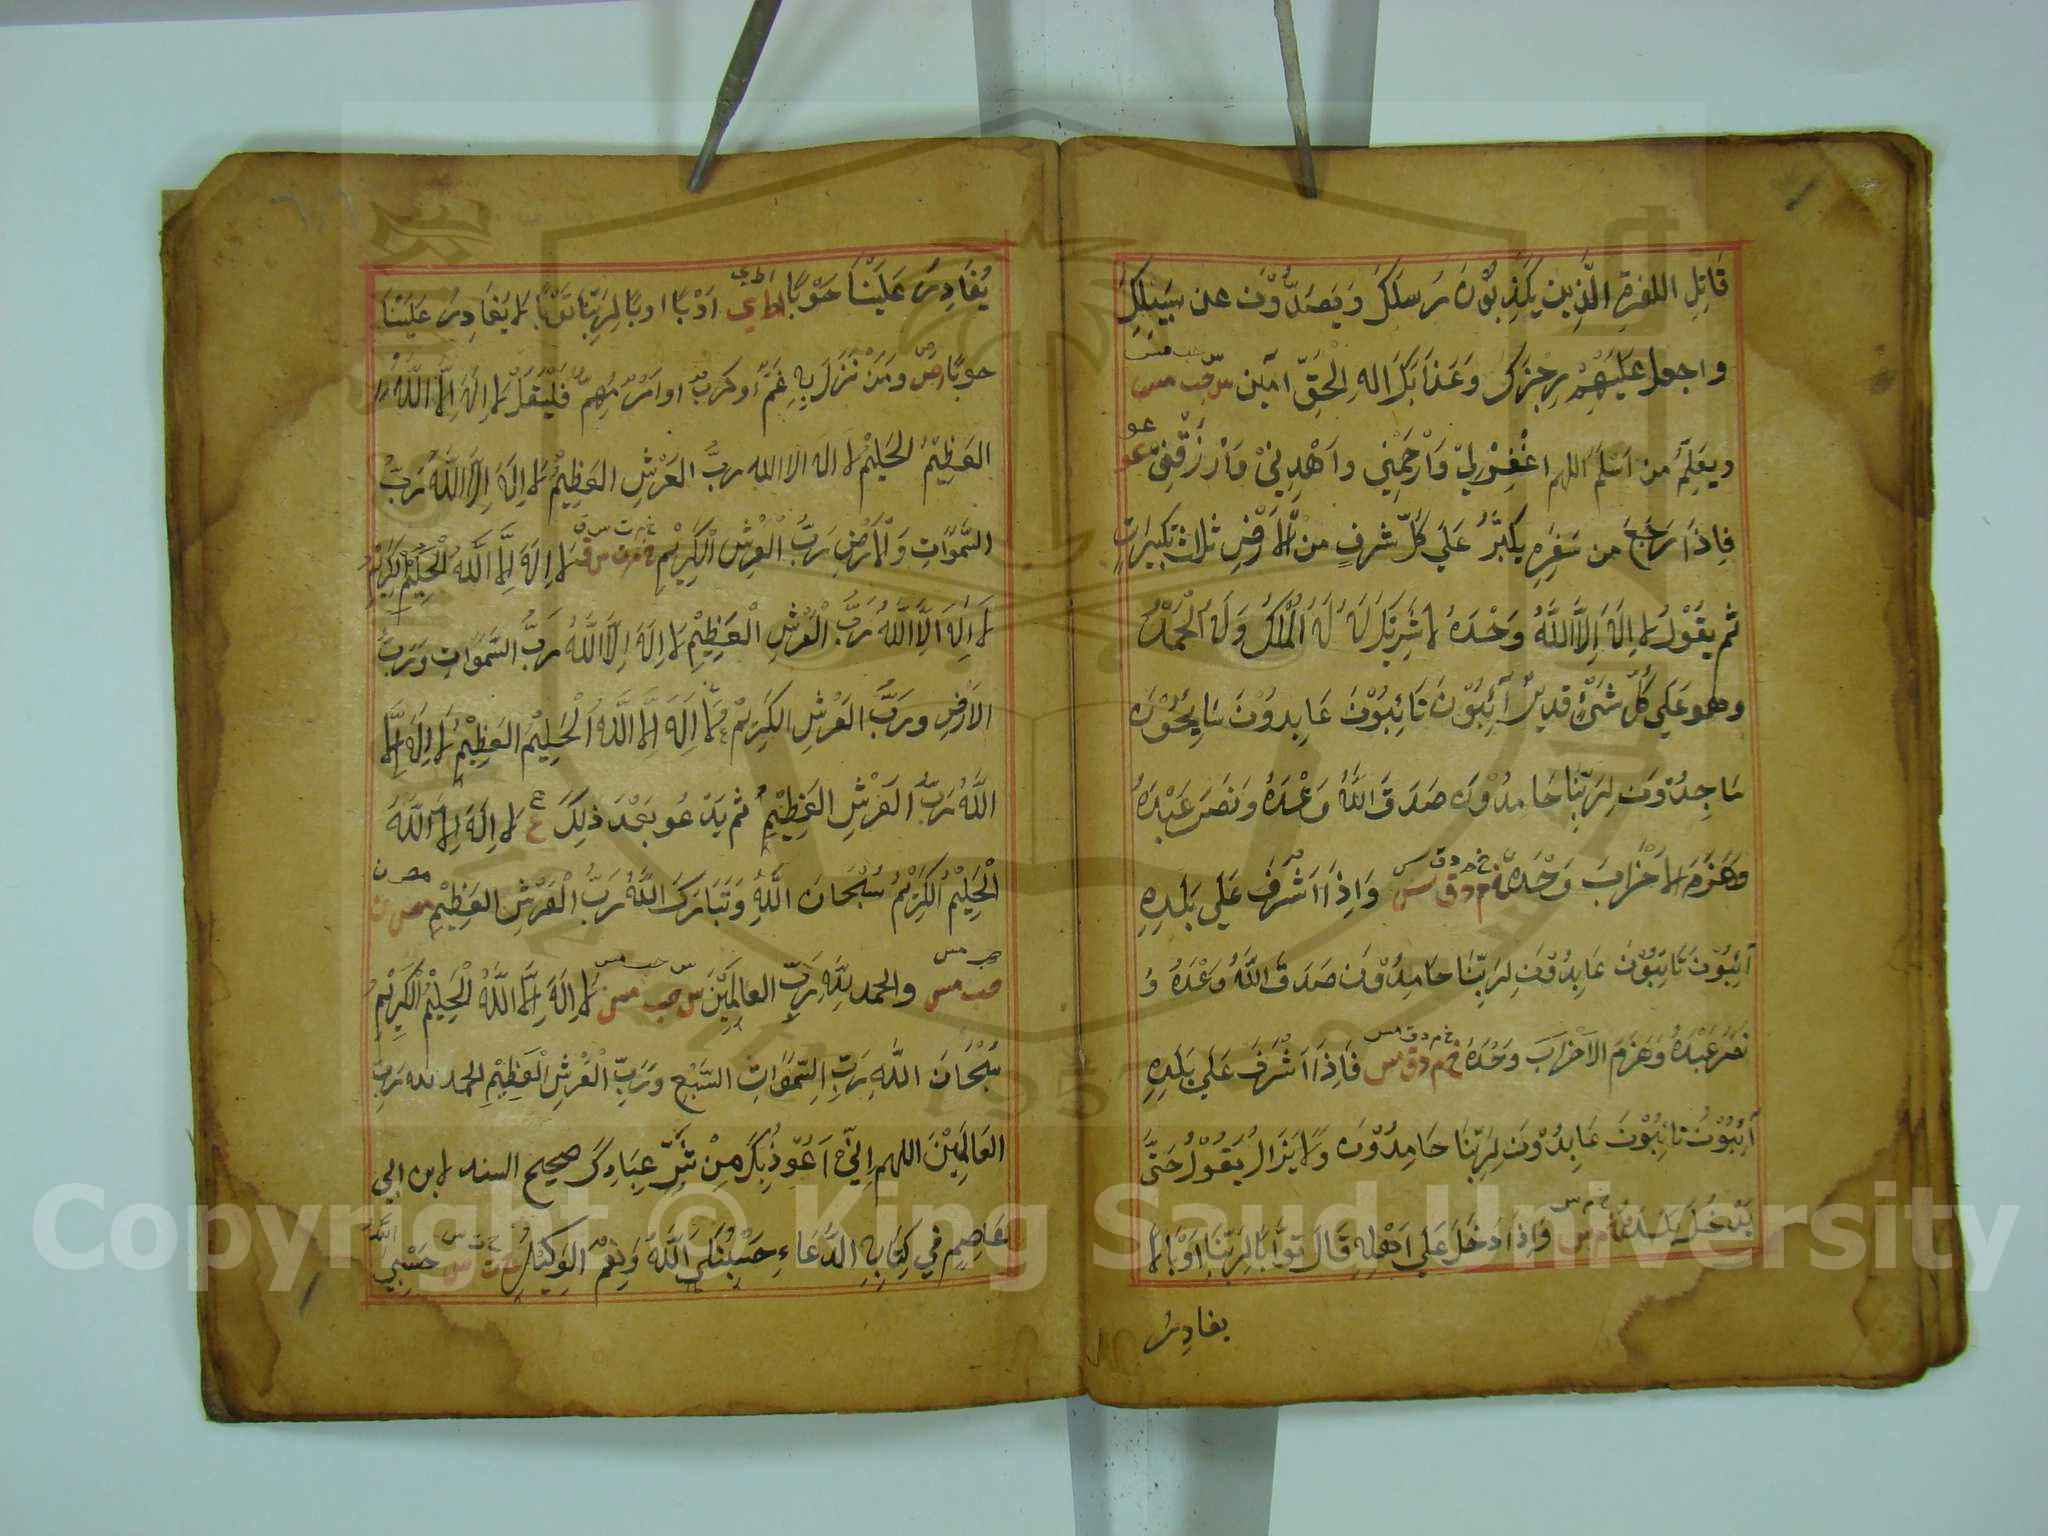 قَاتِلِ الكفرةِ الَّذِين يُكَذِّبُوْنَ رُسلَكَ وَيَصَدُّوْنَ عن سَبِيْلِكَ
واجعل عَلَيْهِمْ رِجْزَكَ وَعَذَابَكَ الٰهِ الحَقِّ اٰمين س حب مس
ويعَلِّمُ من اَسْلَمَ اللهم اغْفِرْ لِيْ وَارْحَمْنِي واَهْدِنِيْ وَارْزُقْنِيْ عو
فاِذَا رَجَعَ من سَفَرِهِ يكبِّرُ عَلَي كُلِّ شرفٍ من الْاَرْضِ ثلاث تكبيراتٍ
ثم يقُوْلُ لا اِلٰهَ اِلَّا اللّٰهُ وَحْدَهُ لا شَرِيْكَ لَهُ لَهُ الْمُلْكُ وَلَهُ الْحَمْدُ
وهو عَلَي كُلِّ شَئٍ قديرٌ اٰئِبُوْنَ تَائِبُوْنَ عَابِدوْنَ سَايِحُوْنَ
سَاجِدُوْنَ لِرَبِّنَا حَامِدُوْنَ صَدَقَ اللّٰهُ وَعْدَهُ وَنَصَرَ عَبْدَهُ
وَهَزَمَ الاَحْزَابَ وَحْدَهُ خ م د ق س وَاِذَا اَشْرَفَ عَلَي بَلَدِهِ
اٰئِبُوْنَ تَائِبُوْنَ عَابِدُوْنَ لِرَبِّنَا حَامِدُوْنَ صَدَقَ اللّٰهُ وَعْدَهُ وَ
نَصَرَ عَبْدَهُ وَهَزَمَ الاَحْزَابَ وَحْدَهُ خ م د ق س فَاِذَا اَشْرَفَ عَلَي بَلَدِهِ
اٰئِبُوْنَ تائِبُوْنَ عَابِدُوْنَ لِرَبِّنَا حَامِدُوْنَ وَلَا يَزَالُ يَقُوْلُ حَتَّى
يَدْخُلَ بَلَدَهُ خ م س وَاِذَا دَخَلَ عَلَي اَهْلِهِ قَالَ تَوْبًا لِرَبِّنَا اَوْبًا لَا
يغادِرُ
يُغَادِرُ عَلَيْنَا حَوْبًا ا ط ي اَوْبًا اوبًا لِرَبِّنَا تَوْبًا لا يُغَادِرُ عَلَيْنَا
حوبًا ر ص وَمَنْ نَزَلَ بِهِ غَمٌّ اَوْ كربٌ او اَمْرٌ مُهِمٌّ فَلْيَقُلْ لَا اِلٰهَ اِلَّا اللّٰهُ
العَظِيْمُ الحَلِيْمُ لا اله الا الله ربُّ العَرْشِ العَظِيْمُ لَا اِلٰهَ اِلَّا اللّٰهُ رَبُّ
السَّمٰوَاتِ وَالْاَرْضِ رَبُّ الْعَرْشِ الْكَرِيْمُ خ م ت س ق لا اِلٰهَ اِلَّا اللّٰهُ الْحَلِيْمُ الكَرِيْمُ
لَا اِلٰهَ اِلَّا اللّٰهُ رَبُّ الْعَرْشِ الْعَظِيْمُ لَا اِلٰهَ اِلَّا اللّٰهُ رَبُّ السَّمٰوَاتِ وَرَبُّ
الاَرْضِ وربُّ العَرْشِ الكَرِيْمُ لَا اِلٰهَ اِلَّا اللّٰهُ الْحَلِيْمُ العَظِيْمُ لا اِلٰهَ اِلَّا
اللّٰهُ رَبُّ العَرْشِ العَظِيْمُ ثم يَدْعُو بَعْدَ ذٰلِكَ ع لا اِلٰهَ اِلَّا اللّٰهُ
الْحَلِيْمُ الكَرِيْمُ سُبْحَانَ اللّٰهِ وَتَبَارَكَ اللّٰهُ رَبُّ الْعَرْشِ العَظِيْمِ مص ن
حب مس والحمد لِلّٰهِ رَبِّ العالَمِيْنَ س حب مس لَا اِلٰهَ اِلَّا اللّٰهُ الْحَلِيْمُ الْكَرِيْمُ
سُبْحَانَ اللّٰهِ رَبِّ السَّمٰوَاتِ السَّبْعِ وَرَبِّ الْعَرْشِ الْعَظِيْمِ الحمد لله رَبِّ
العَالَمِيْنَ اللهم اِنِّي اَعُوْذُ بِكَ مِنْ شَرِّ عِبَادِكَ صحيح السنه لابن ابي
عَاصِمٍ في كِتَابِهِ الدُّعَاءِ حَسْبُنَا اللّٰهُ وَنِعْمَ الوَكِيْلُ خ ت س حَسْبِيَ اللّٰهُ
Copyright © King Saud University
1957